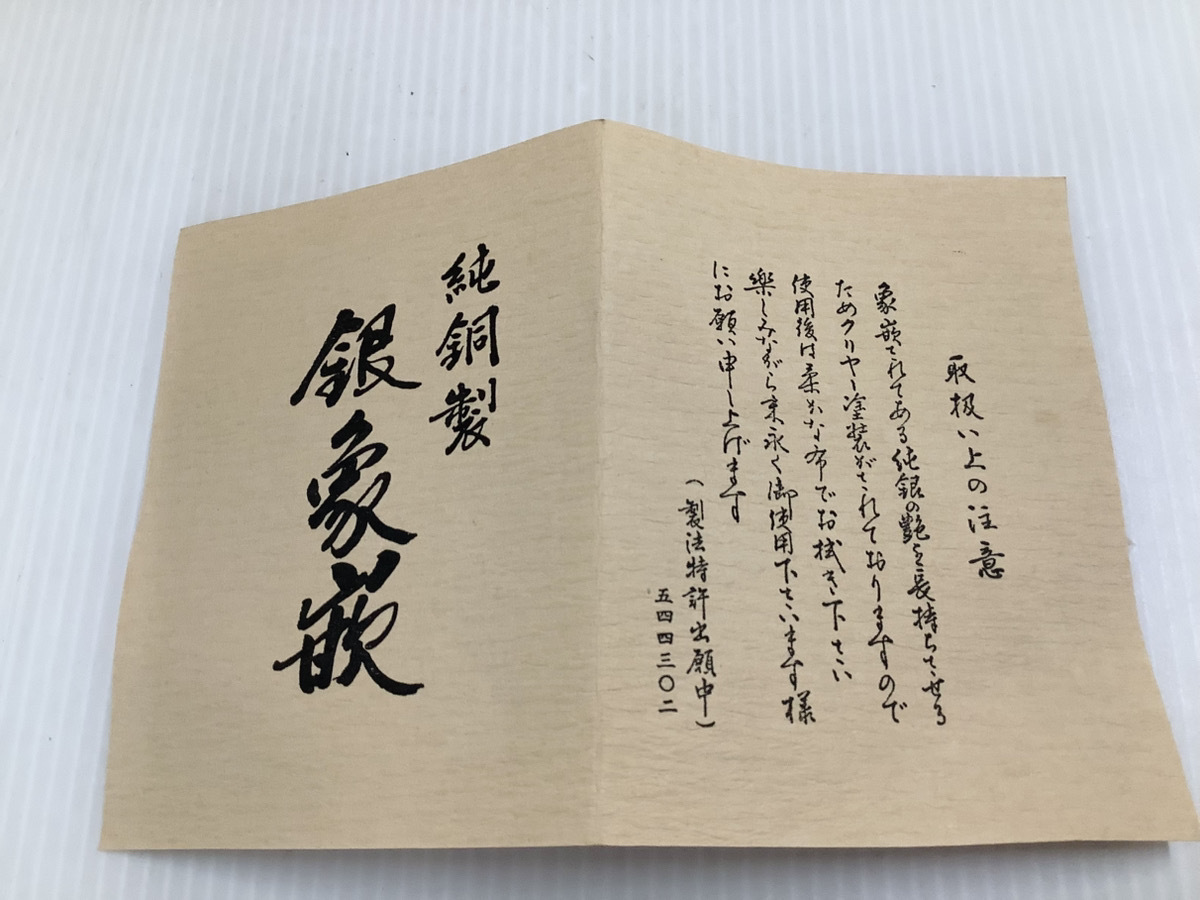 取扱い上の注意
象嵌されてある純銀の艶を長持ちさせる
ためクリヤー塗装がされておりますので
使用後は柔かな布でお拭き下さい
楽しみながら末永く御使用下さいます様
にお願い申し上げます
(製法特許出願中)
五四四三〇二
純銅製
銀象嵌